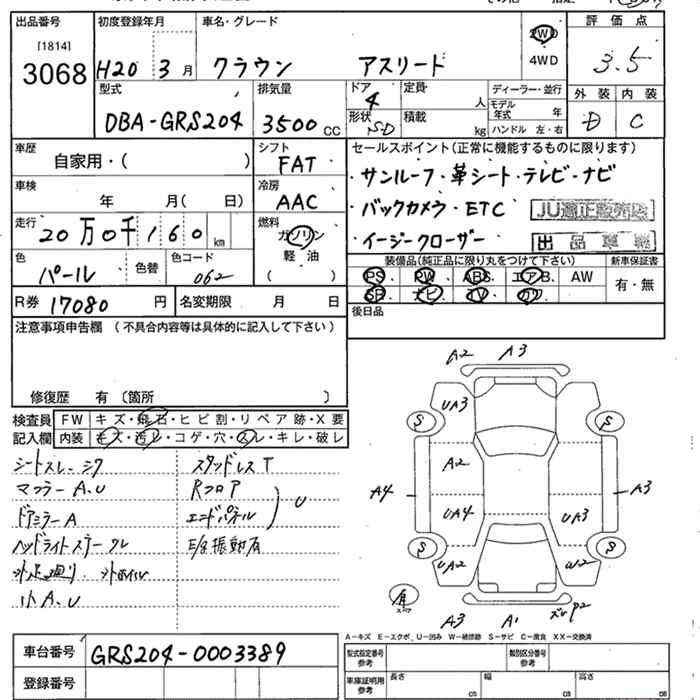 出品番号 初度登録年月 車名・グレード 2WD 評価点
[1814] 4WD
3068 H20 3月 クラウン アスリート 3.5
型式 排気量 ドア 定員 人 ディーラー・並行 外装 内装
4 モデル年式 年
DBA-GRS204 3500CC 形状 SD 積載 kg ハンドル 左・右 D C
車歴 シフト セールスポイント(正常に機能するものに限ります)
自家用・( ) FAT ・サンルーフ・革シート・テレビ・ナビ
車検 冷房
年 月( 日) AAC ・バックカメラ・ETC JU適正販売店
走行 燃料
20万0千160km ガソリン ・イージークローザー 出品車輌
色 色替 色コード 軽油 装備品(純正品に限り丸をつけて下さい) 新車保証書
パール 062 ( ) PS. PW. ABS. エアB. AW 有・無
R券 17080円 名変期限 月 日 SR. ナビ. TV. カワ.
注意事項申告欄 (不具合内容等は具体的に記入して下さい) 後日品
修復歴 有 〔箇所 〕
検査員 FW キズ・飛石・ヒビ割・リペア跡・X要
記入欄 内装 キズ・汚レ・コゲ・穴・スレ・キレ・破レ
A2 A3
UA3
S S
A2
A4 UA4 UA3 A3
S S
UA2 W2
A3 A1 P2
シートスレ、シワ スタッドレスT
マフラーA.U Rフロア
ドアミラーA エンドパネル U
ヘッドライトスチール クレ
小A.U
A-キズ E-エクボ U-凹み W-補修跡 S-サビ C-腐食 XX-交換済
車台番号 GRS204-0003389 型式指定番号 参考 類別区分番号 参考
登録番号 車庫証明用 参考 長さ cm 幅 cm 高さ cm